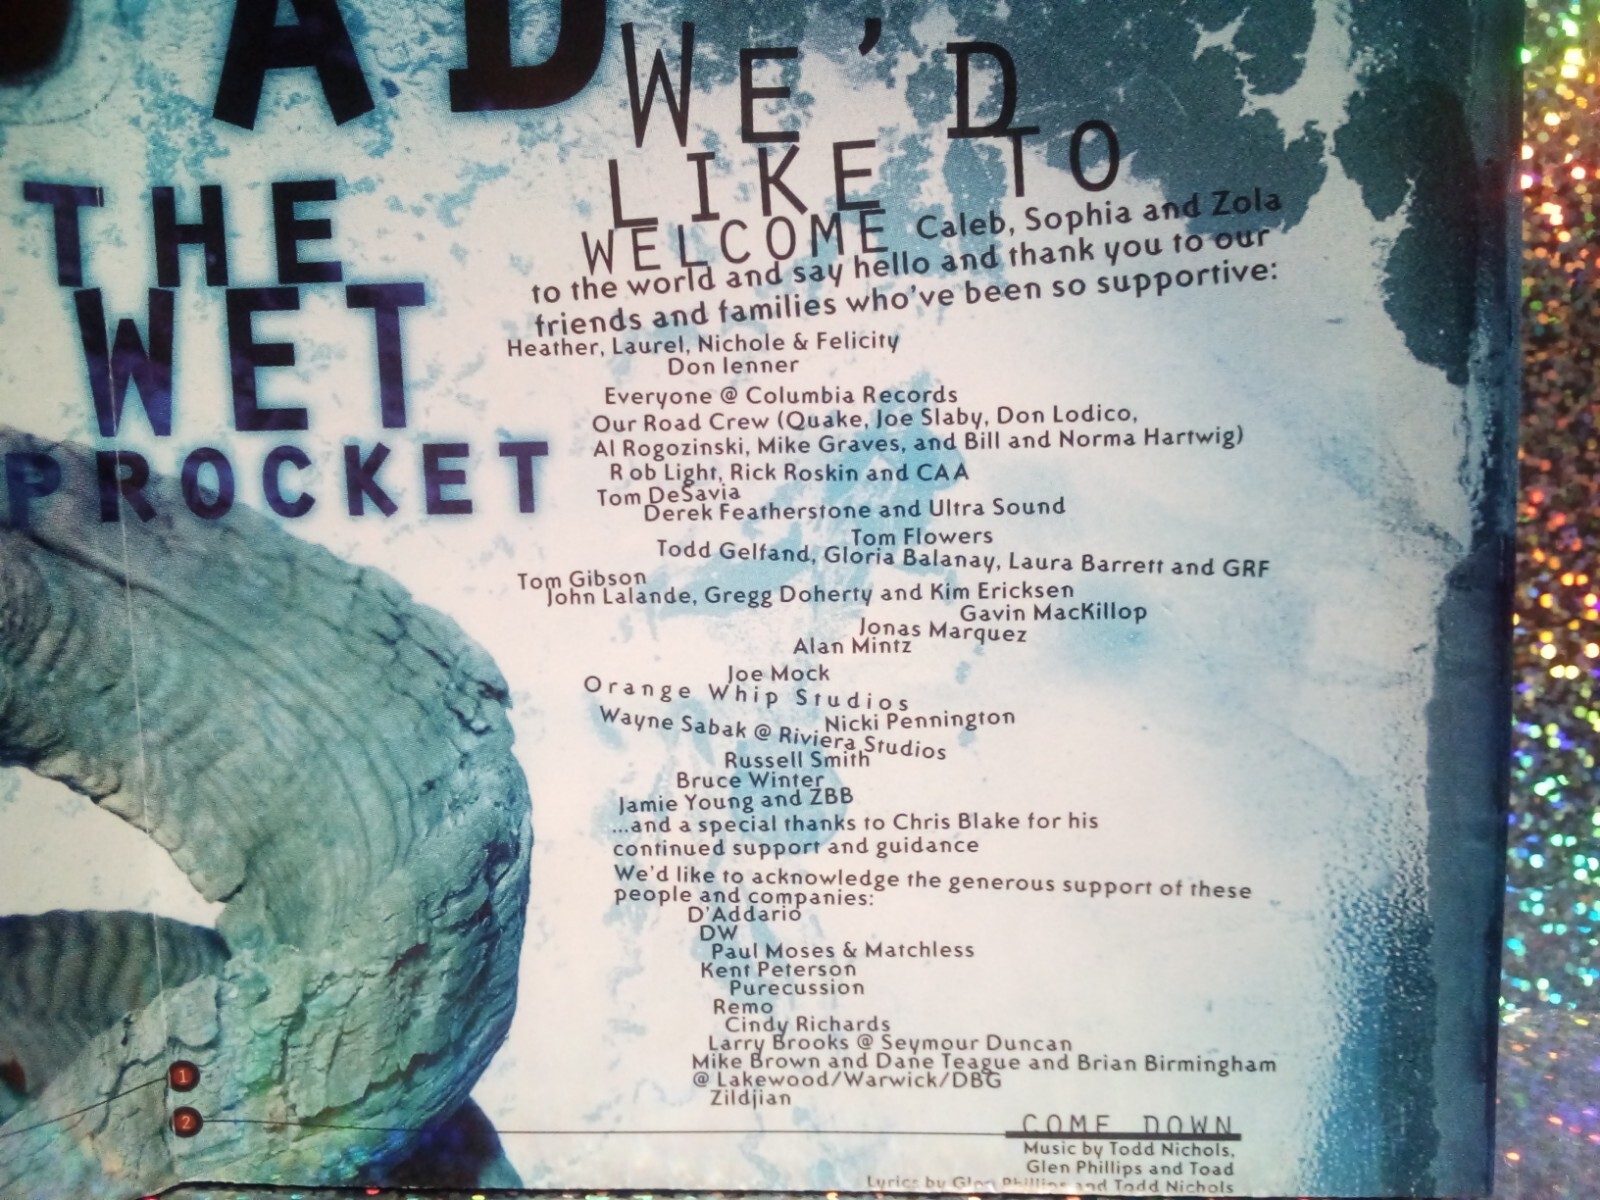 OAD
THE
WET
PROCKET
WE'D
LIKE TO
WELCOME Caleb, Sophia and Zola
to the world and say hello and thank you to our
friends and families who've been so supportive:
Heather, Laurel, Nichole & Felicity
Don Ienner
Everyone @ Columbia Records
Our Road Crew (Quake, Joe Slaby, Don Lodico,
Al Rogozinski, Mike Graves, and Bill and Norma Hartwig)
Rob Light, Rick Roskin and CAA
Tom DeSavia
Derek Featherstone and Ultra Sound
Tom Flowers
Todd Gelfand, Gloria Balanay, Laura Barrett and GRF
Tom Gibson
John Lalande, Gregg Doherty and Kim Ericksen
Gavin MacKillop
Jonas Marquez
Alan Mintz
Joe Mock
Orange Whip Studios
Nicki Pennington
Wayne Sabak @ Riviera Studios
Russell Smith
Bruce Winter
Jamie Young and ZBB
...and a special thanks to Chris Blake for his
continued support and guidance
We'd like to acknowledge the generous support of these
people and companies:
D'Addario
DW
Paul Moses & Matchless
Kent Peterson
Purecussion
Remo
Cindy Richards
Larry Brooks @ Seymour Duncan
Mike Brown and Dane Teague and Brian Birmingham
@ Lakewood/Warwick/DBG
Zildjian
1
2
COME DOWN
Music by Todd Nichols,
Glen Phillips and Toad
Lyrics by Glen Phillips and Todd Nichols